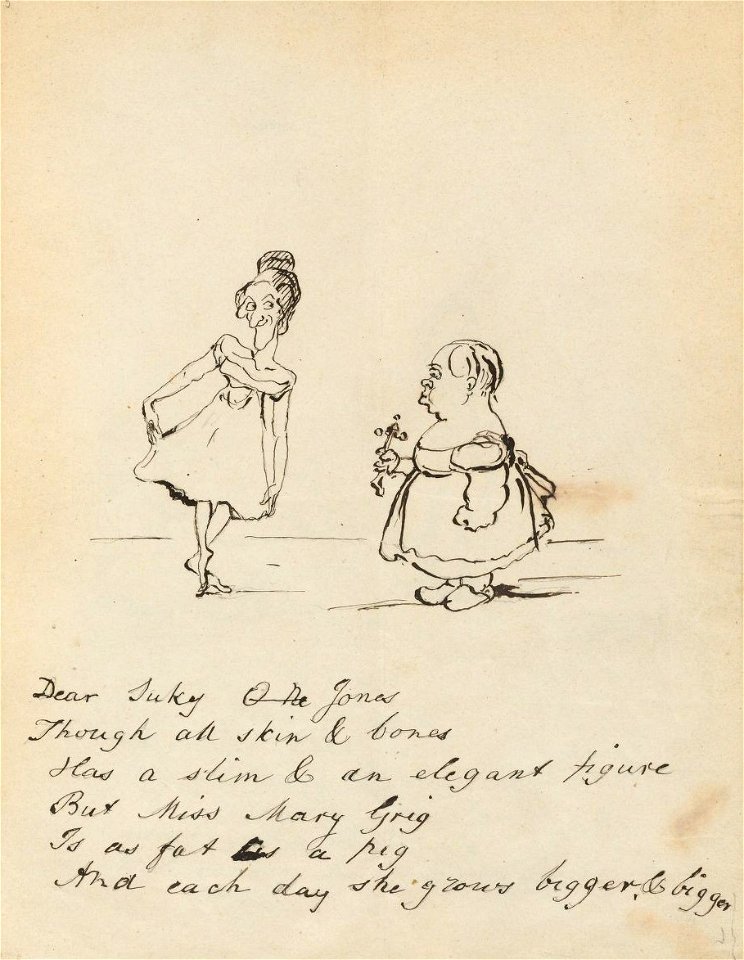 Dear Suky Jones
Though all skin & bones
Has a slim & an elegant figure
But Miss Mary Grig
Is as fat as a pig
And each day she grows bigger & bigger